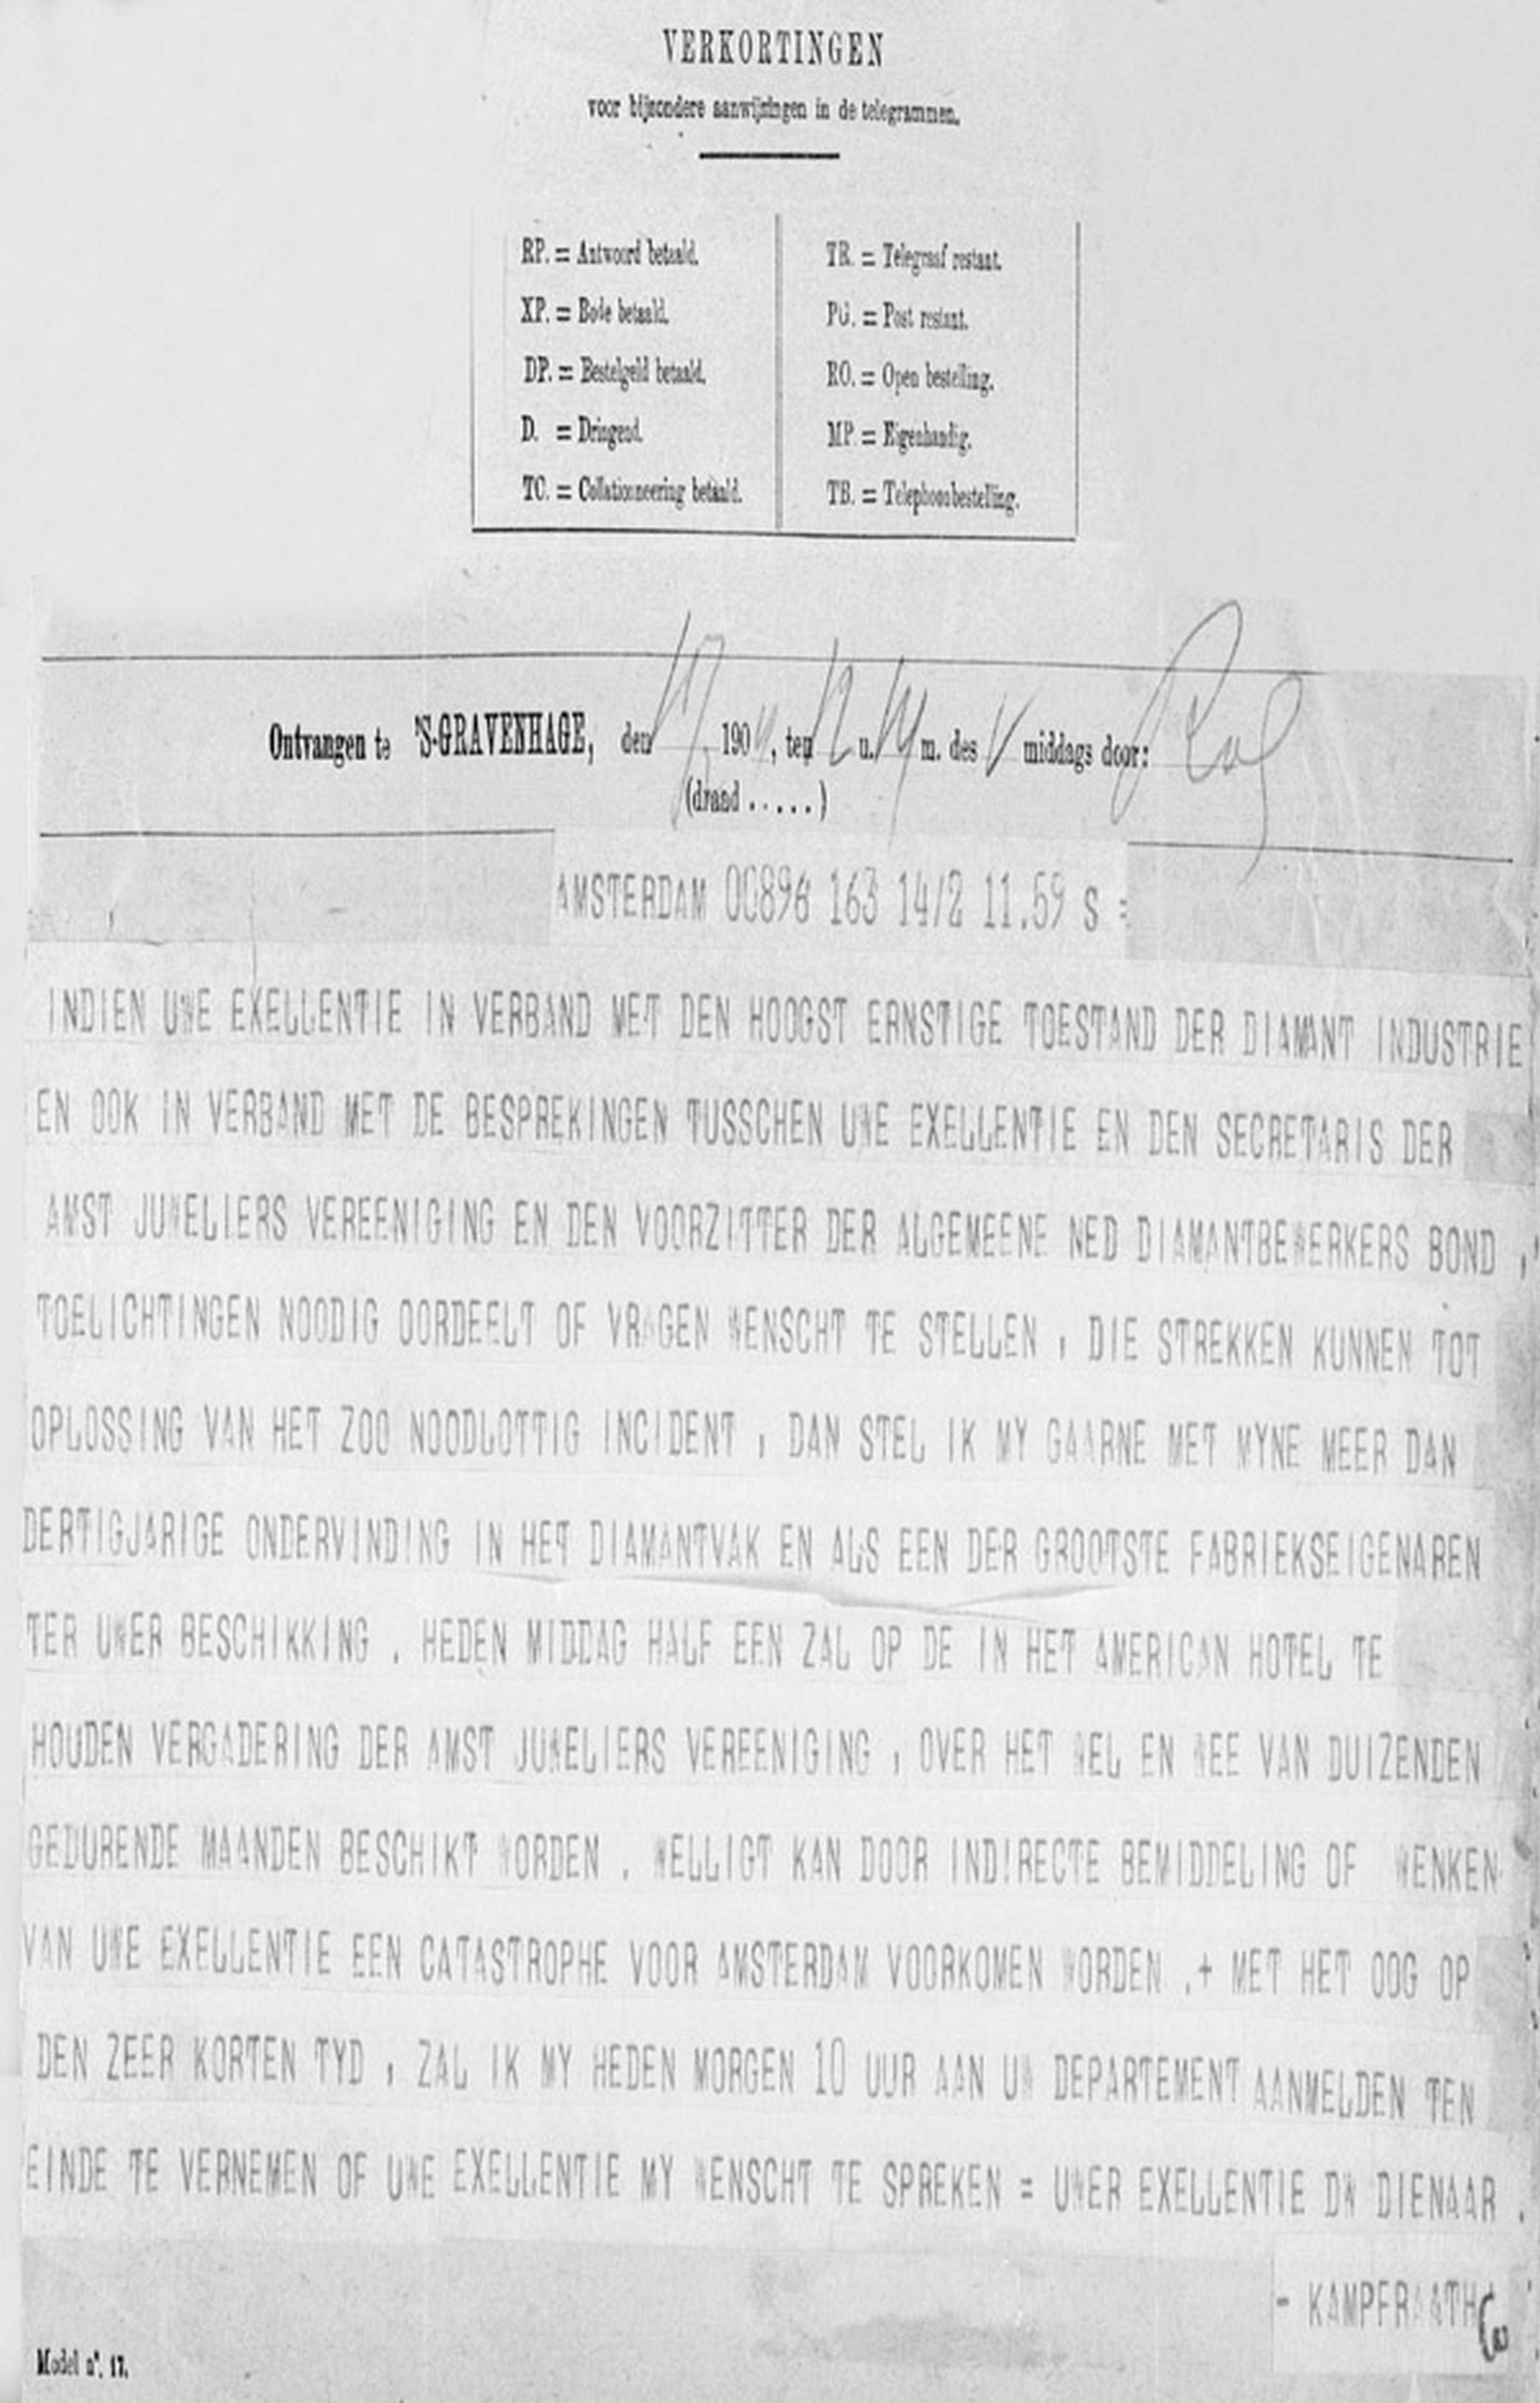 VERKORTINGEN
voor bijzondere aanwijzingen in de telegrammen.
RP. = Antwoord betaald.
XP. = Bode betaald.
DP. = Bestelgeld betaald.
D. = Dringend.
TC. = Collationneering betaald.
TR. = Telegraaf restant.
PG. = Post restant.
RO. = Open bestelling.
MP. = Eigenhandig.
TB. = Telephoonbestelling.
Ontvangen te 'S-GRAVENHAGE, den 190 , ten 12 u. 14 m. des V middags door:
(draad . . . . . )
AMSTERDAM 00896 163 14/2 11.59 S =
INDIEN UWE EXELLENTIE IN VERBAND MET DEN HOOGST ERNSTIGE TOESTAND DER DIAMANT INDUSTRIE
EN OOK IN VERBAND MET DE BESPREKINGEN TUSSCHEN UWE EXELLENTIE EN DEN SECRETARIS DER
AMST JUWELIERS VEREENIGING EN DEN VOORZITTER DER ALGEMEENE NED DIAMANTBEWERKERS BOND ,
TOELICHTINGEN NOODIG OORDEELT OF VRAGEN WENSCHT TE STELLEN , DIE STREKKEN KUNNEN TOT
OPLOSSING VAN HET ZOO NOODLOTTIG INCIDENT , DAN STEL IK MY GAARNE MET MYNE MEER DAN
DERTIGJARIGE ONDERVINDING IN HET DIAMANTVAK EN ALS EEN DER GROOTSTE FABRIEKSEIGENAREN
TER UWER BESCHIKKING . HEDEN MIDDAG HALF EEN ZAL OP DE IN HET AMERICAN HOTEL TE
HOUDEN VERGADERING DER AMST JUWELIERS VEREENIGING , OVER HET WEL EN WEE VAN DUIZENDEN
GEDURENDE MAANDEN BESCHIKT WORDEN . WELLIGT KAN DOOR INDIRECTE BEMIDDELING OF WENKEN
VAN UWE EXELLENTIE EEN CATASTROPHE VOOR AMSTERDAM VOORKOMEN WORDEN .+ MET HET OOG OP
DEN ZEER KORTEN TYD , ZAL IK MY HEDEN MORGEN 10 UUR AAN UW DEPARTEMENT AANMELDEN TEN
EINDE TE VERNEMEN OF UWE EXELLENTIE MY WENSCHT TE SPREKEN = UWER EXELLENTIE DW DIENAAR .
- KAMPFRAATH
Model n°. 17.